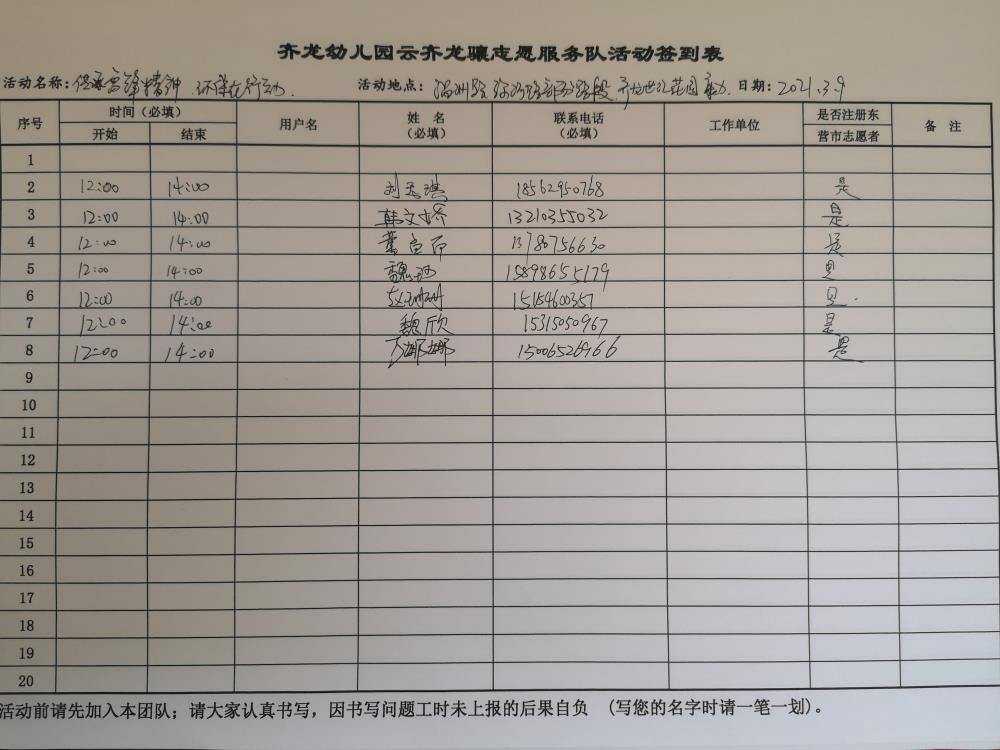 齐龙幼儿园云齐龙骧志愿服务队活动签到表
活动名称：传承雷锋精神 环保在行动. 活动地点： 日期：2021.3.9
序号 时间（必填） 用户名 姓 名（必填） 联系电话（必填） 工作单位 是否注册东营市志愿者 备 注
开始 结束
1
2 12:00 14:00 刘秀琪 18562950768 是
3 12:00 14:00 韩文娇 13210355032 是
4 12:00 14:00 13780756630 是
5 12:00 14:00 15898655179 是
6 12:00 14:00 赵珊珊 15154600357 是.
7 12:00 14:00 魏欣 15315050967 是
8 12:00 14:00 娜娜 15006526966 是
9
10
11
12
13
14
15
16
17
18
19
20
活动前请先加入本团队；请大家认真书写，因书写问题工时未上报的后果自负 （写您的名字时请一笔一划）。